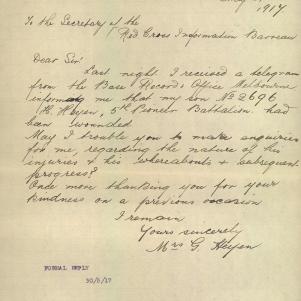 1917
To the Secretary of the
Red Cross Information Bureau
Dear Sir!
Last night I received a telegram
from the Base Records Office Melbourne
informing me that my son No 2696
H. Heyen, 5th Pioneer Battalion. had
been wounded.
May I trouble you to make enquiries
for me, regarding the nature of his
injuries & his whereabouts & subsequent
progress?
Once more thanking you for your
kindness on a previous occasion
I remain
Yours sincerely
Mrs G. Heyen
FORMAL REPLY
30/5/17